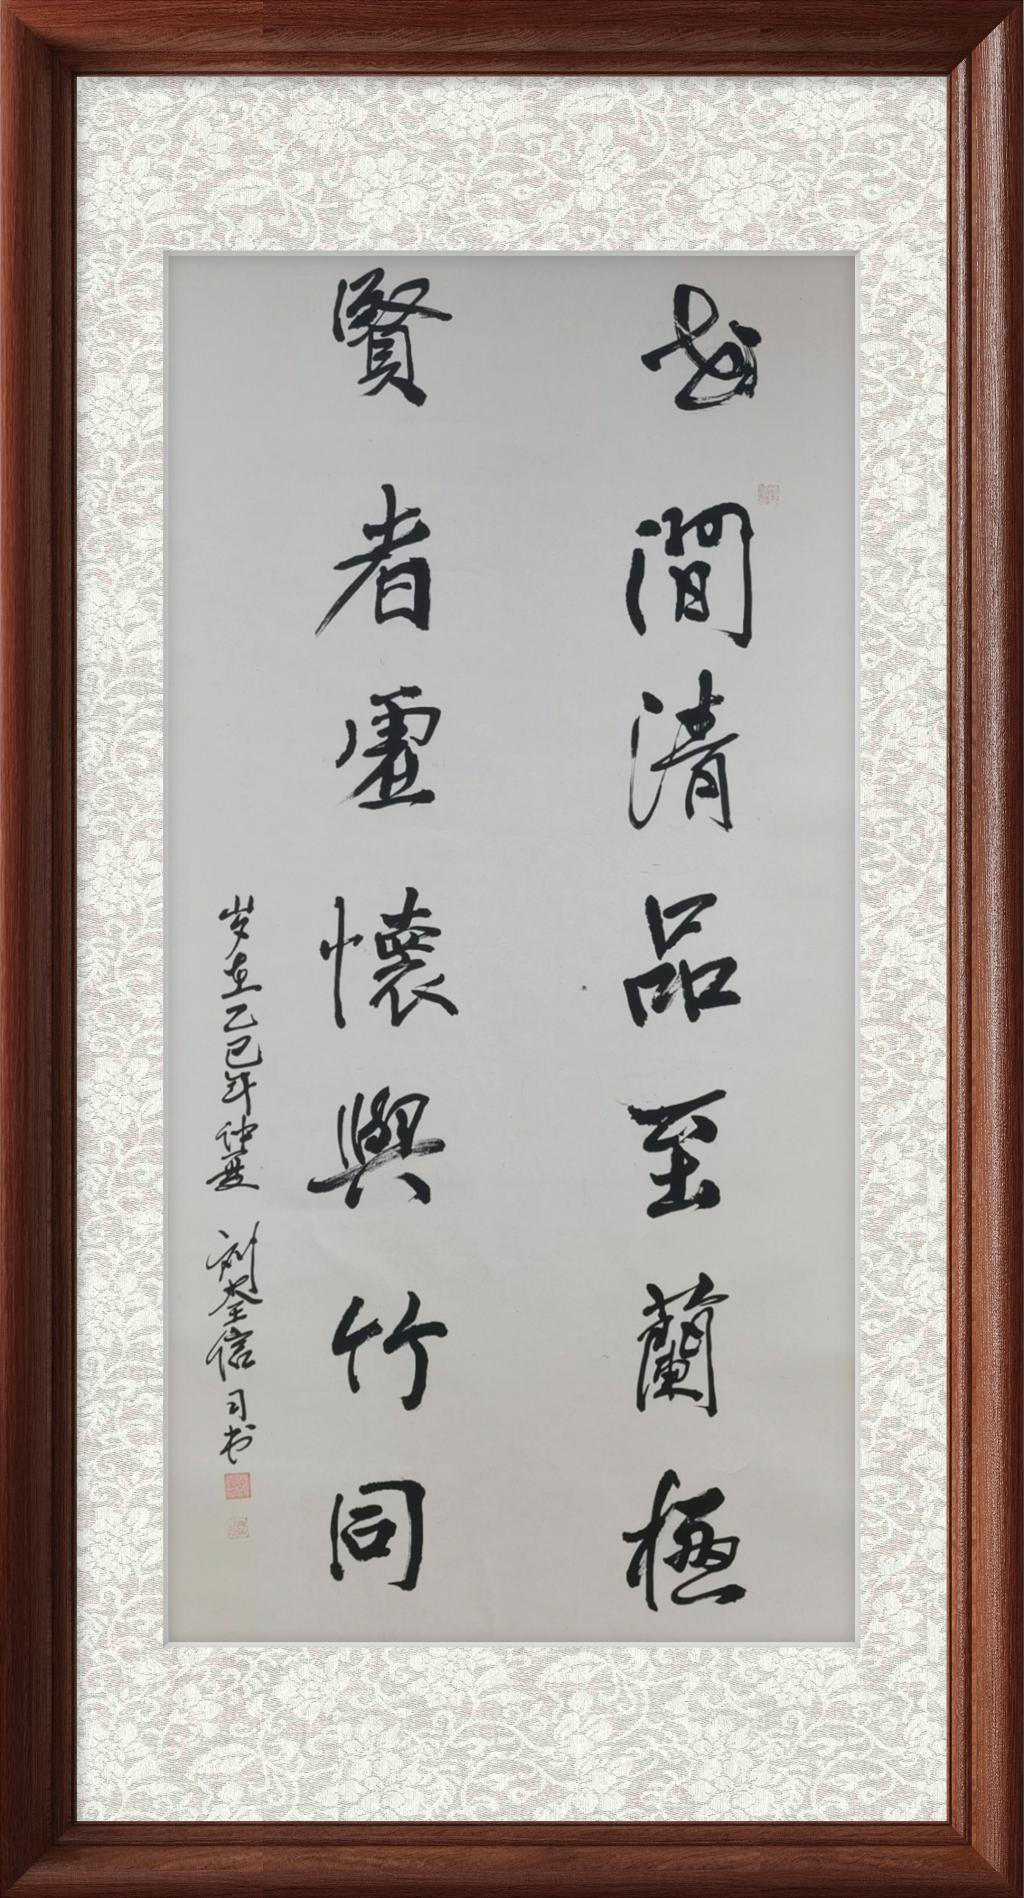 世間清品至蘭極
賢者虛懷與竹同
岁在乙巳年仲夏 刘奎信习书